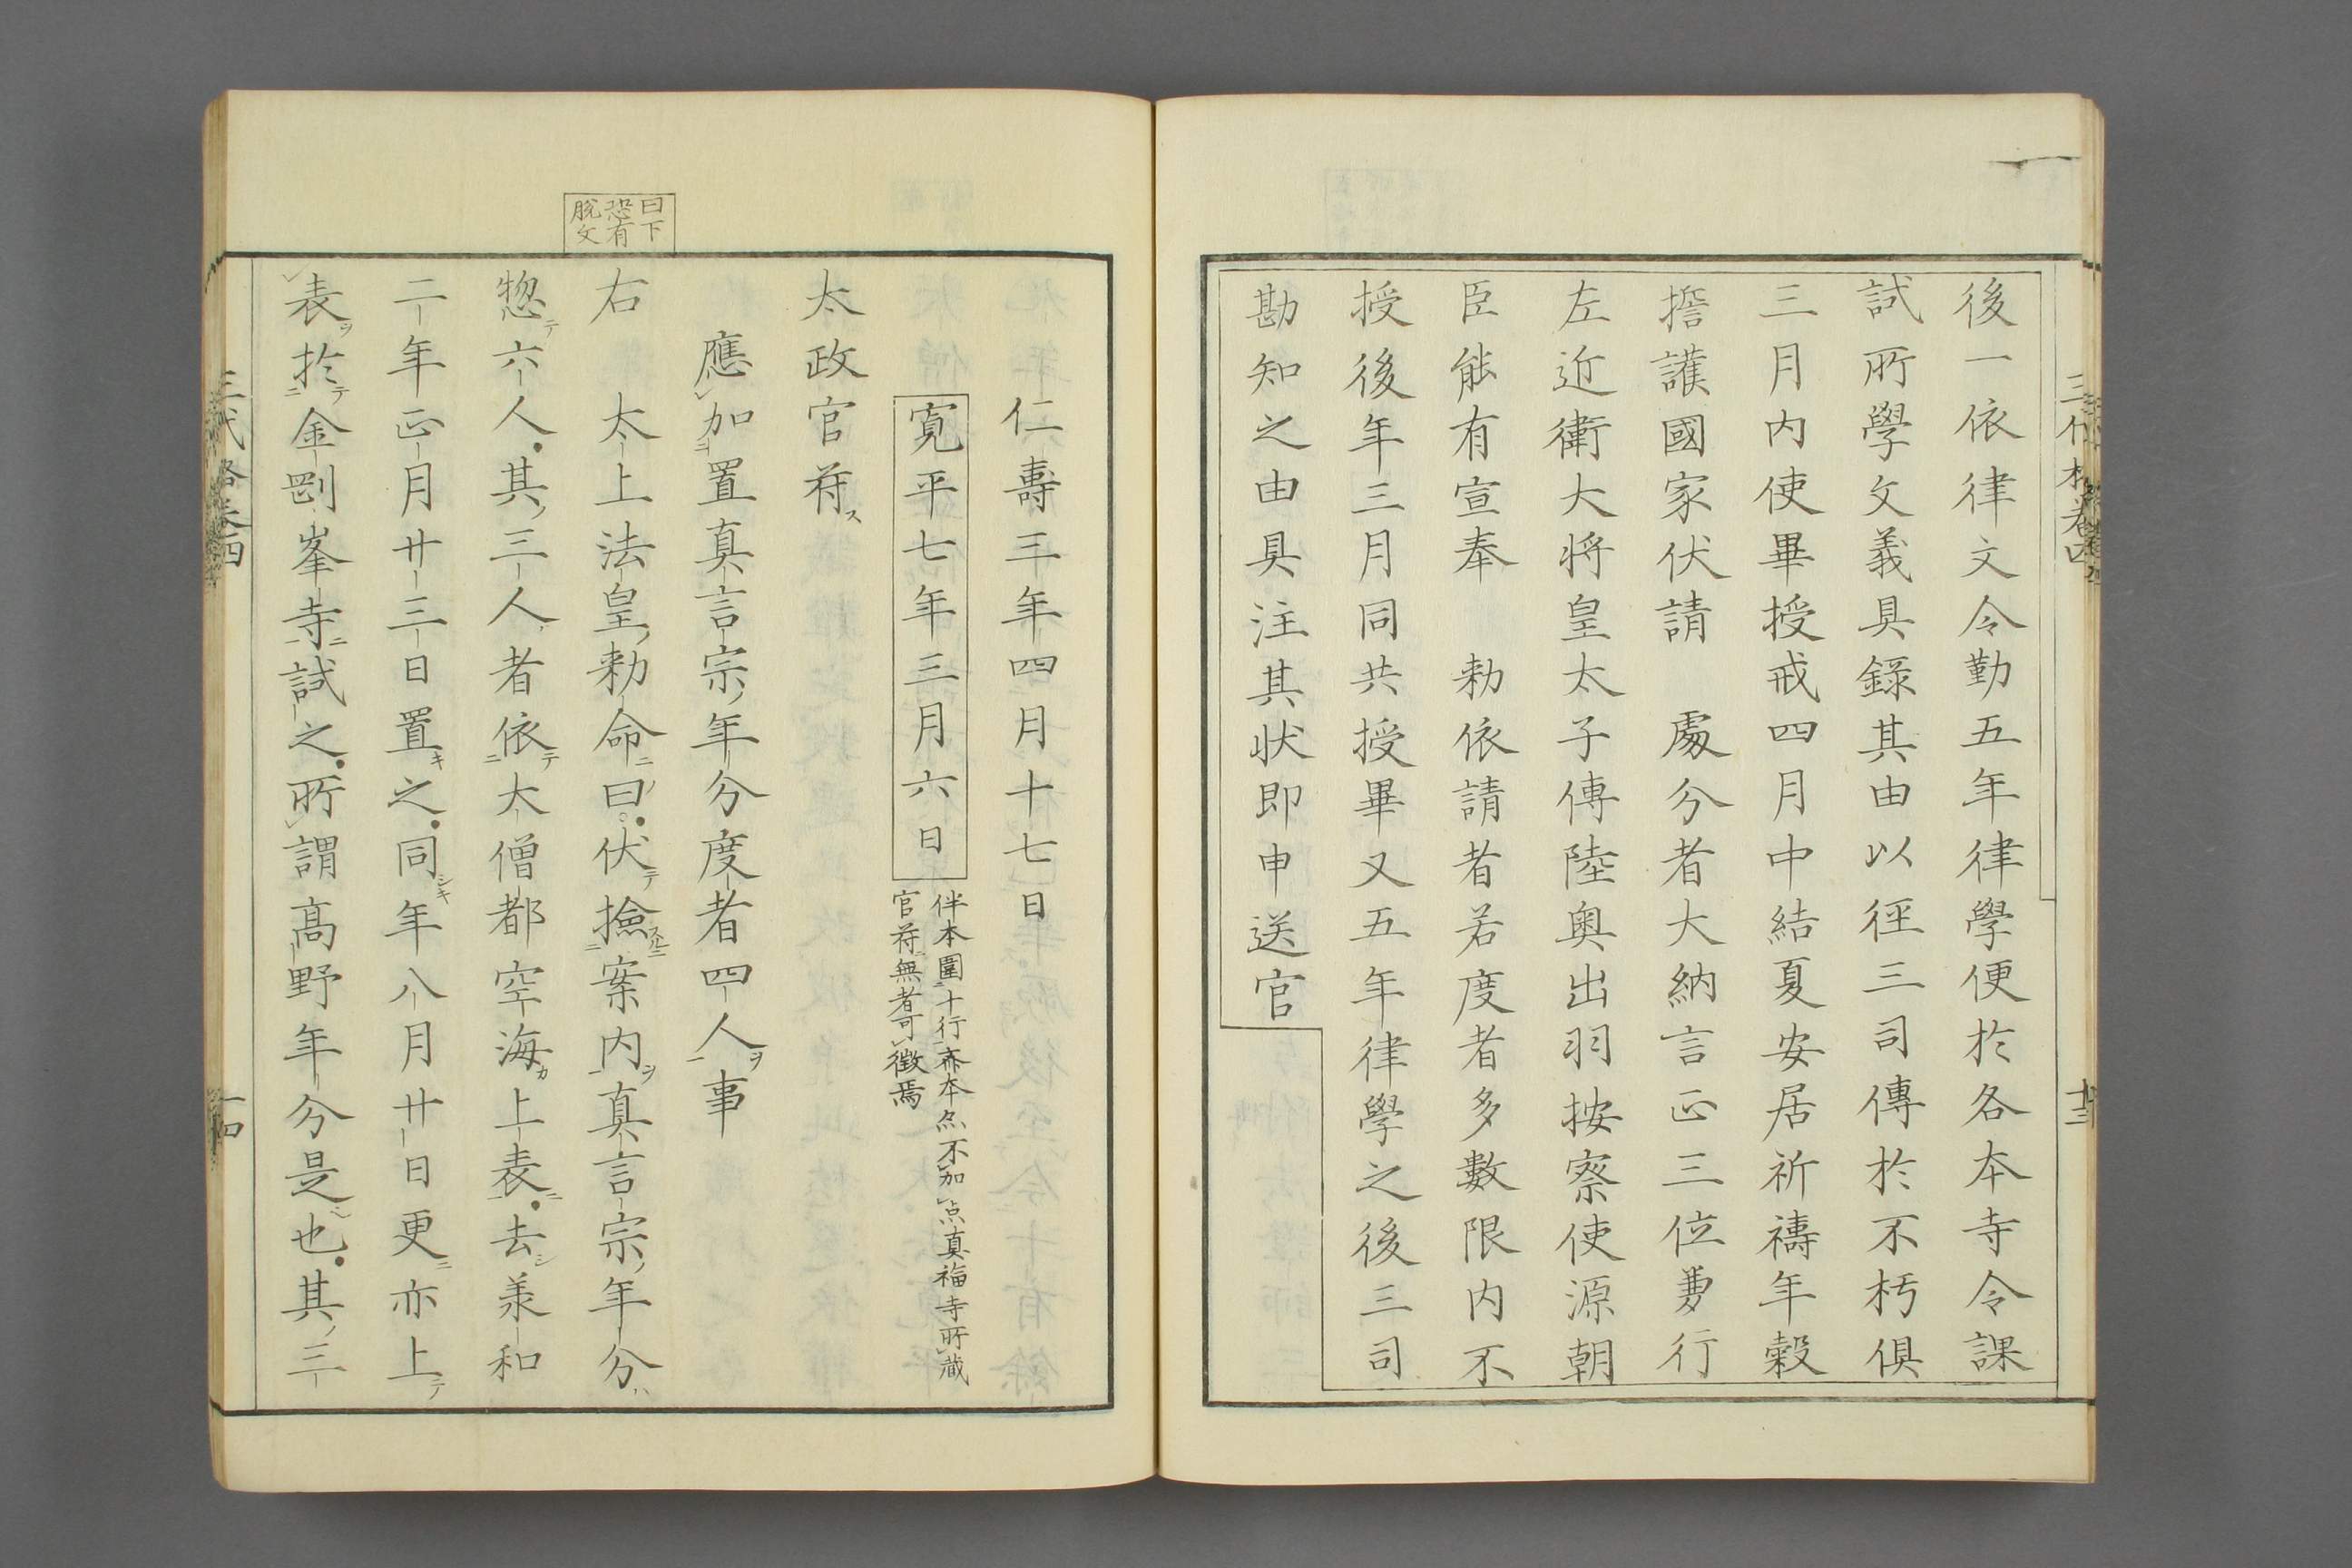 後一依律文令勤五年律學便於各本寺令課
試所學文義具錄其由以徑三司傳於不朽俱
三月内使畢授戒四月中結夏安居祈禱年穀
擔護國家伏請　處分者大納言正三位兼行
左近衛大将皇太子傳陸奥出羽按察使源朝
臣能有宣奉　勅依請者若度者多數限内不
授後年三月同共授畢又五年律學之後三司
勘知之由具注其状即申送官
仁壽三年四月十七日
寛平七年三月六日
伴本圍十行亦本点不加点真福寺所蔵
官符無者可徴焉
太政官符ス
應加置真言宗ノ年分度者四人ヲ事
曰下
恐有
脱文
右　太上法皇ノ勅命ニ曰伏テ撿スルニ案内ヲ真言宗ノ年分ハ
惣テ六人其ノ三人者依テ大僧都空海カ上表ニ去シ羕和
二年正月廿三日置キ之同シキ年八月廿日更ニ亦上テ
表ヲ於テ金剛峯寺ニ試之所謂高野年分是也其ノ三
三代格卷四
十四